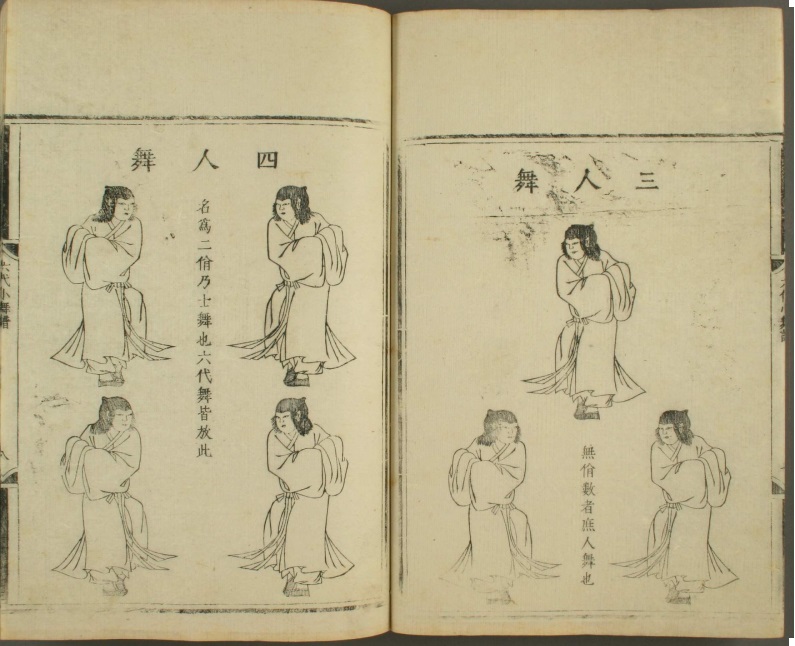 三人舞
無佾數者庶人舞也
四人舞
名爲二佾乃士舞也六代舞皆放此
六代小舞譜